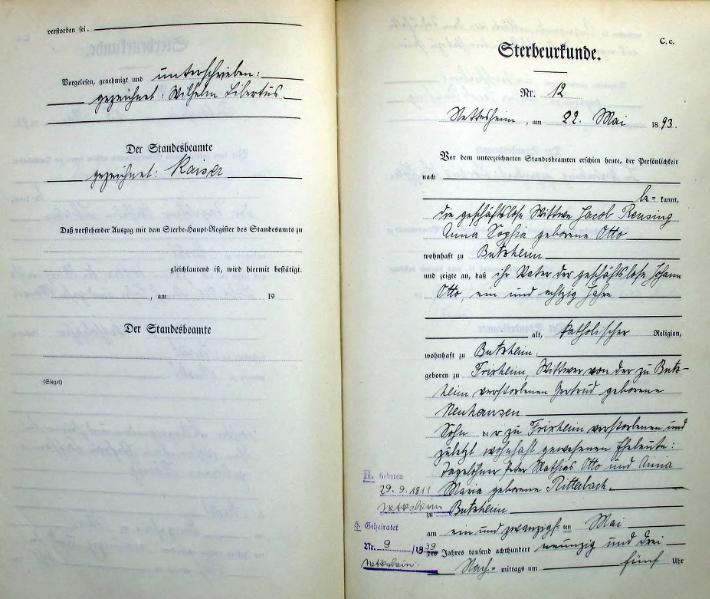 verstorben sei.
Vorgelesen, genehmigt und unterschrieben:
gezeichnet: Wilhelm Libertus
Der Standesbeamte
gezeichnet: Kaiser
Daß vorstehender Auszug mit dem Sterbe-Haupt-Register des Standesamts zu
gleichlautend ist, wird hiermit bestätigt.
, am 19
Der Standesbeamte
(Siegel)
C. c.
Sterbeurkunde.
Nr. 12
Nettesheim, am 22. Mai 1893.
Vor dem unterzeichneten Standesbeamten erschien heute, der Persönlichkeit
nach
be- kannt,
die geschäftslose Wittwe Jacob Rensing
Anna Sophia geborene Otto
wohnhaft zu Butzheim
und zeigte an, daß ihr Vater der geschäftslose Johann
Otto, ein und achtzig Jahre
alt, katholischer Religion,
wohnhaft zu Butzheim
geboren zu Frixheim, Wittwer von der zu Butz-
heim verstorbenen Gertrud geborene
Neuhausen
Sohn der zu Frixheim verstorbenen und
zuletzt wohnhaft gewesenen Eheleute:
Tagelöhner Peter Mathias Otto und Anna
Maria geborene Ritterbach
zu Butzheim
am ein und zwanzigsten Mai
des Jahres tausend achthundert neunzig und drei
Nach- mittags um fünf Uhr
Geboren
29.9.1811
Geheiratet
Nr. 9 /1839